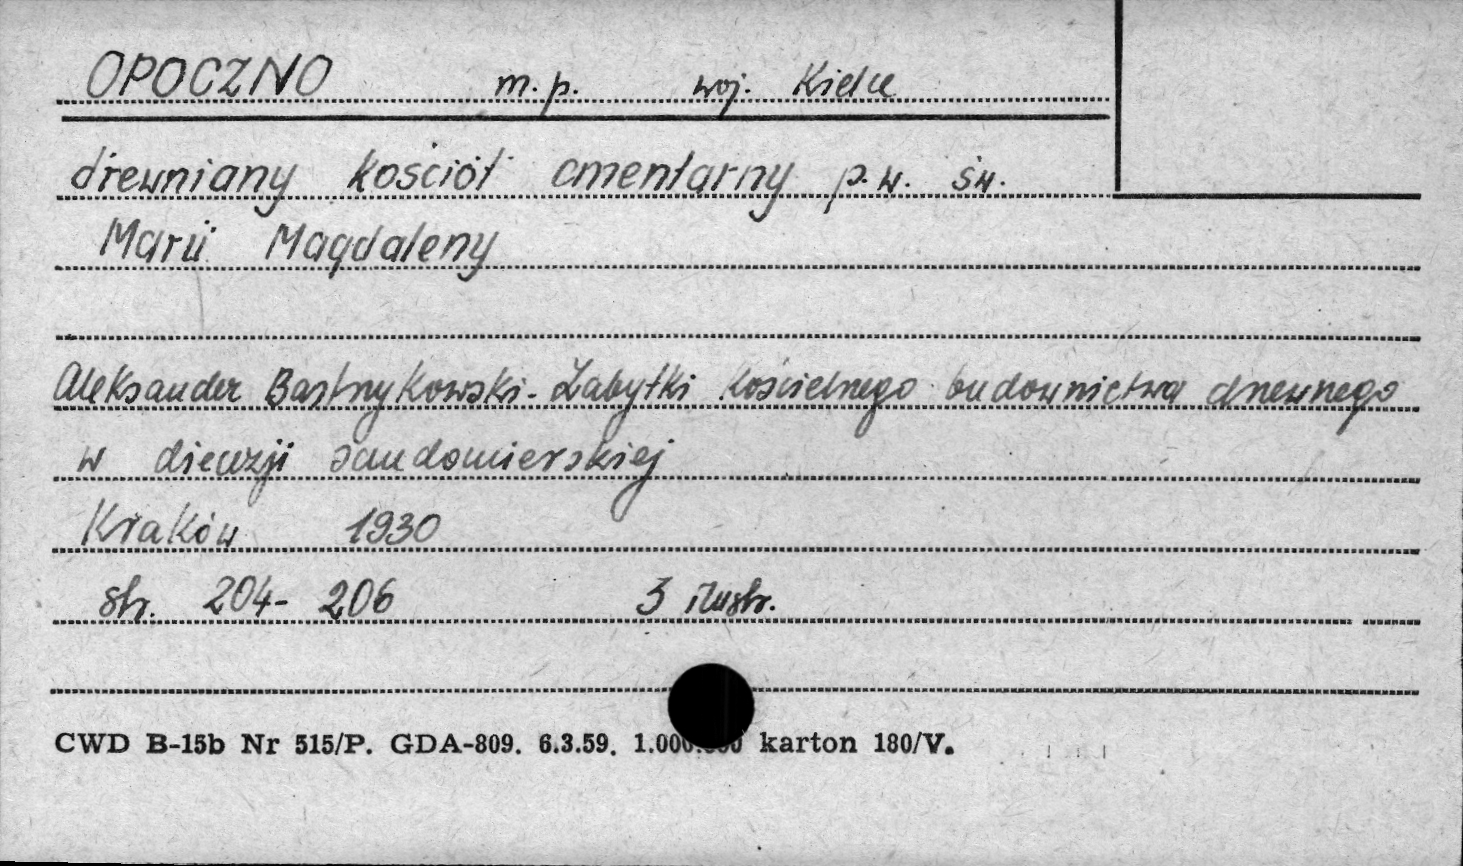 OPOCZNO m.p. woj. Kielce
drewniany kościół cmentarny p.w. św.
Marii Magdaleny
Aleksander Bastrzykowski - Zabytki kościelnego budownictwa drewnego
w diecezji sandomierskiej
Kraków 1930
str. 204-206 3 ilustr.
CWD B-15b Nr 515/P. GDA-809. 6.3.59. 1.000.000 karton 180/V.